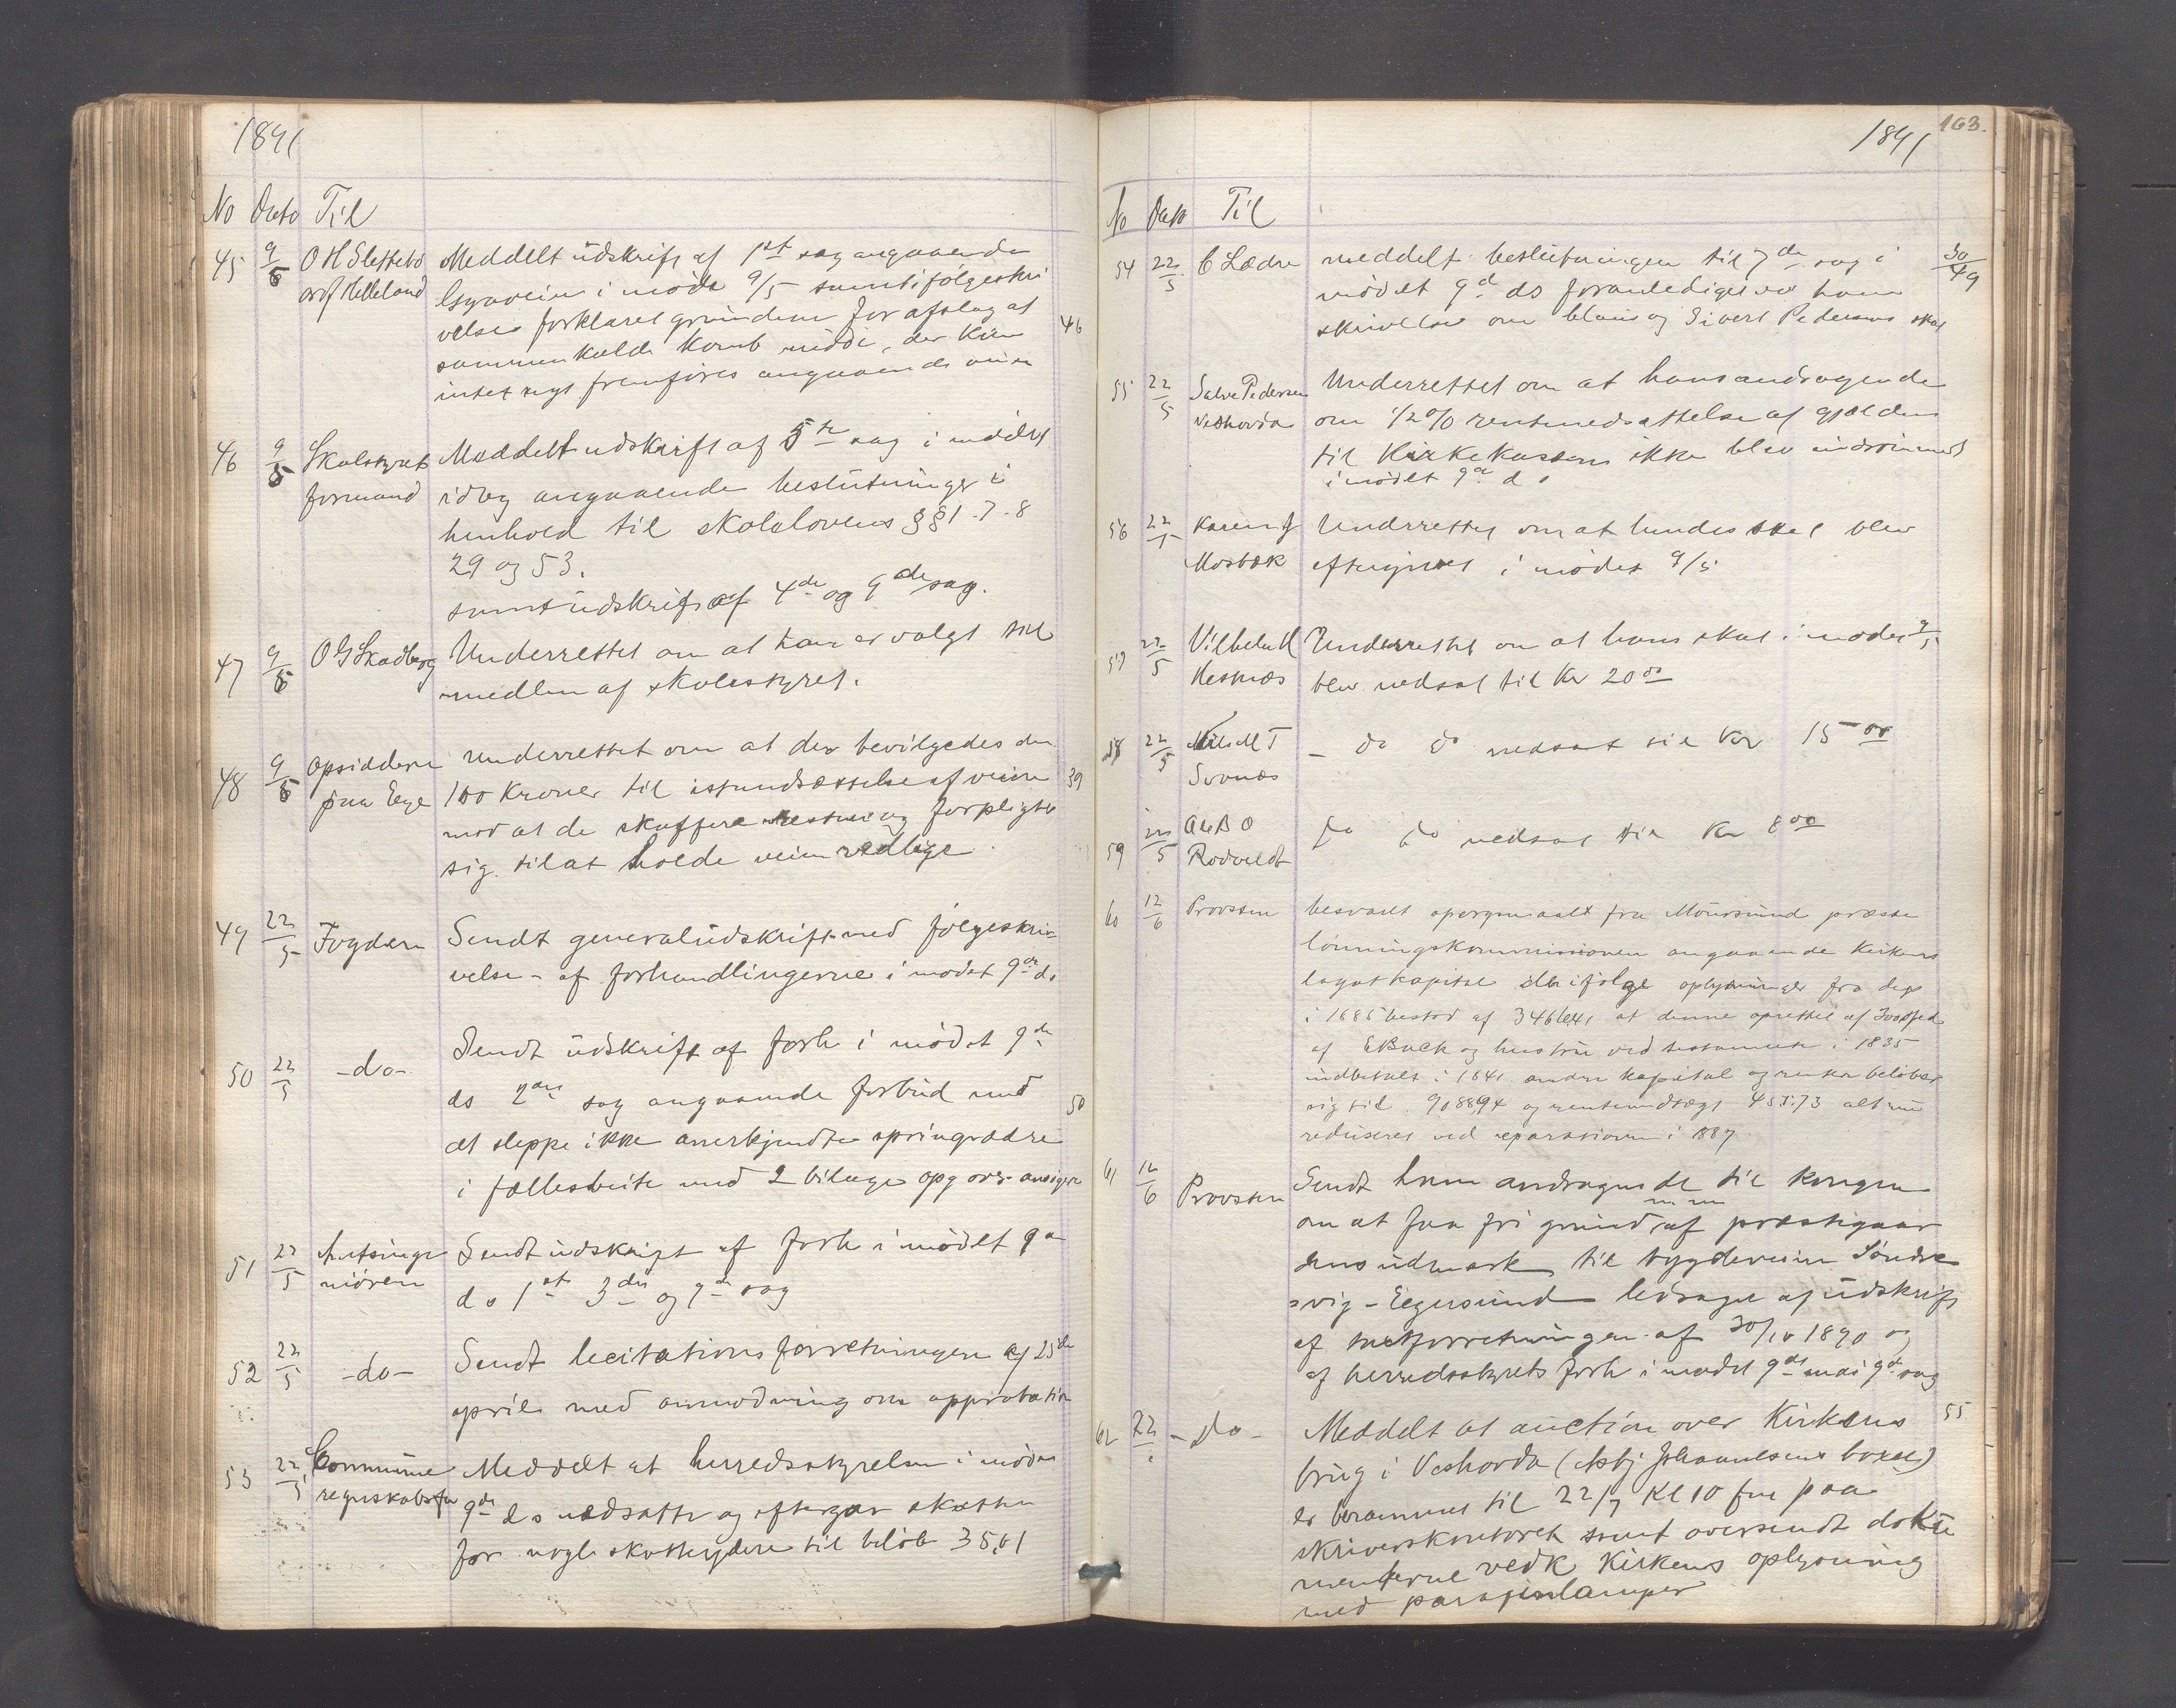 1891
No Dato Til
45 9/5 O H Slettebø Meddelt udskrift af 1ste sag angaaende
og Helleland i møde 9/5 samt i følgeskri
velse forklaret grundene for afslag at 46
sammenkalde komb møde, der kun
intet nyt fremføres angaaende veien
46 9/5 Skolestyrets Meddelt udskrift af 5te sag i mødet
formand idag angaaende beslutninger i
henhold til skolelovens §§ 1 . 7 . 8
29 og 53.
samt udskrift af 4de og 9de sag.
47 9/5 O G Skadberg Underrettet om at han er valgt til
medlem af skolestyret.
48 9/5 Opsidderne Underrettet om at der bevilgedes dem
paa Eege 100 Kroner til istandsættelse af veien 39
mod at de skaffere resten og forpligte
sig til at holde veien vedlige
49 22/5 Fogden Sendt generaludskrift med følgeskri-
velse - af forhandlingerne i mødet 9de ds
50 22/5 -do- Sendt udskrift af forh i mødet 9de
ds 2den sag angaaende forbud mod 50
at sleppe ikke anerkjendte springvædre
i fællesbeite med 2 bilage opg over
51 22/5 Amtsinge Sendt udskrift af forh i mødet 9de
niøren ds 1ste 3die og 7de sag
52 22/5 -do- Sendt licitationsforretningen af 25de
april med anmodning om approbation
53 22/5 Commune Meddelt at herredsstyrelsen i mødet
regnskabsfør 9de ds nedsatte og eftergav skatten
for nogle skatteydere til beløb 35,61
163.
1891
No Dato Til
54 22/5 C Lædre meddelt beslutningen til 7de sag i 30/49
mødet 9de ds foranlediget ved hans
skrivelse om hans og Sivert Pedersens skat
55 22/5 Salve Pedersen Underrettet om at hans andragende
Veshovda om 1/2 % rentenedsættelse af gjælden
til Kirkekassen ikke blev indrømmet
i mødet 9de ds
56 22/5 Karen J Underrettet om at hendes skat blev
Mosbæk eftergivet i mødet 9/5
57 22/5 Vilhelm H Underrettet om at hans skat i mødet 9/5
Hesnæs blev nedsat til Kr 20 00
58 22/5 Nils M T - do do nedsat til Kr 15 00
Svanæs
59 22/5 Ole B O do do nedsat til Kr 8 00
Rodveldt
60 12/6 Provsten besvaret spørgsmaalet fra præste
lønningskommissionen angaaende Kirkens
legatkapital ifølge oplysninger fra
i 1885 bestod af at denne oprettet af
af E Buch og hustru ved testamente i 1835
indbetalt i 1841 andre kapital og renter beløber
sig til 9088,94 og renteindtægt 453.73 alt
reduceret ved reparationen i 1887
61 12/6 Provsten Sendt ham andragende til kongen
om at faa fri grund af præstegaar
dens udmark til bygdeveien Søndre
vig - Egersund ledsaget af udskrift
af forretningen af 30/10 1890 og
af herredsstyrets forh i mødet 9de mai 9de sag
62 22/6 - do - Meddelt at auction over Kirkens 55
brug i Veshovda (Asbj Johannesens bøxel)
er berammet til 22/7 Kl 10 fm paa
skriverkontoret samt oversendt doku
menterne vedk Kirkens oplysning
med parafinlamper